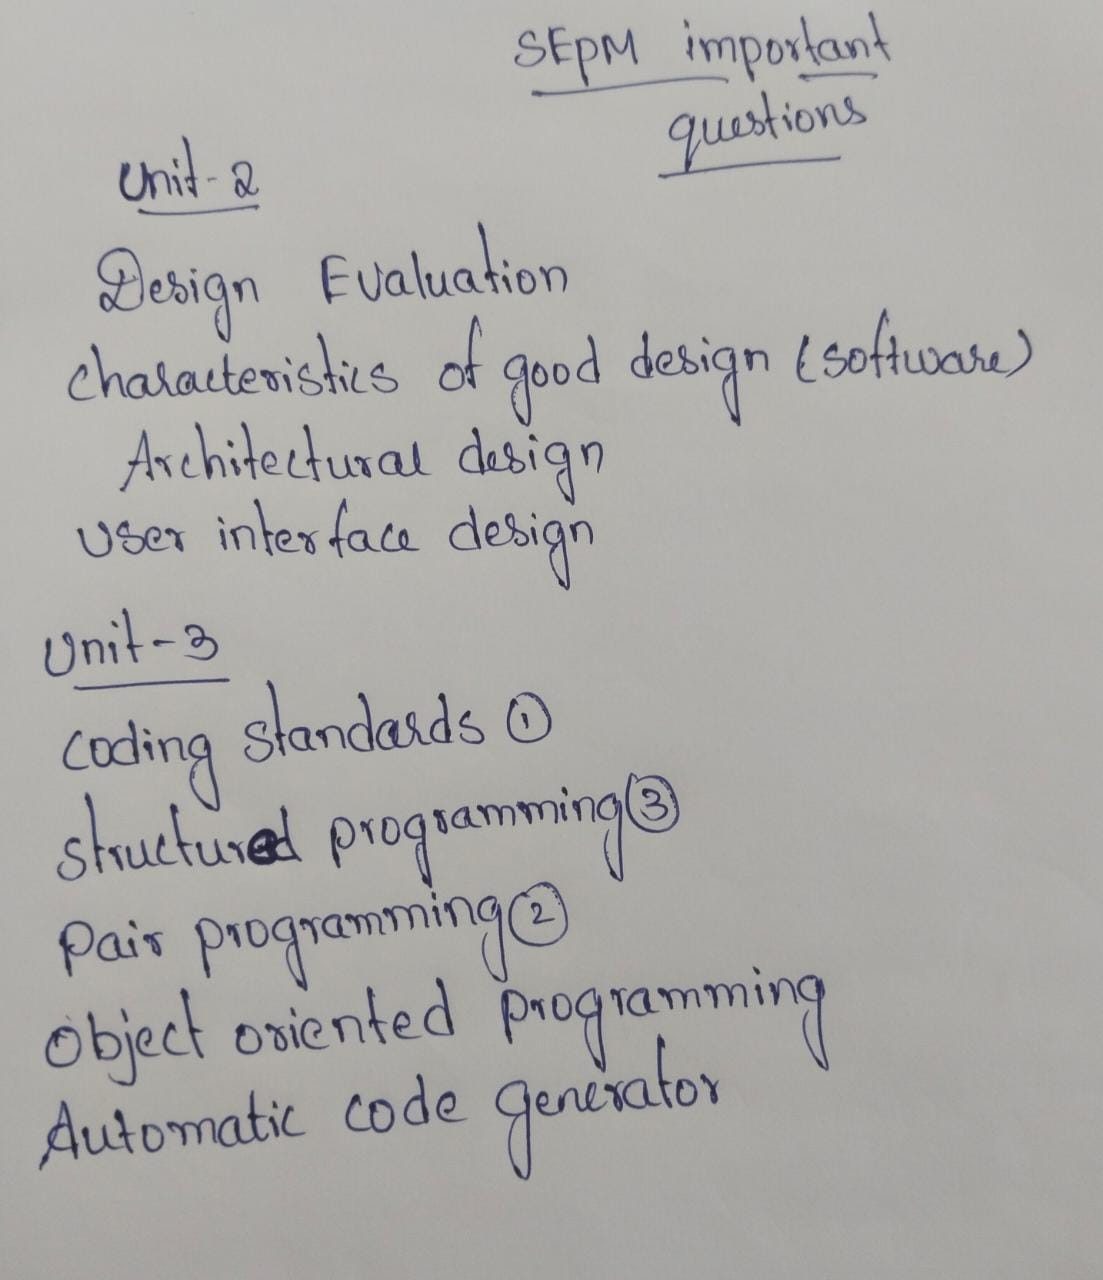 SEPM important
questions
Unit-2
Design Evaluation
characteristics of good design (software)
Architectural design
User interface design
Unit-3
coding standards ①
structured programming ③
pair programming ②
object oriented programming
Automatic code generator